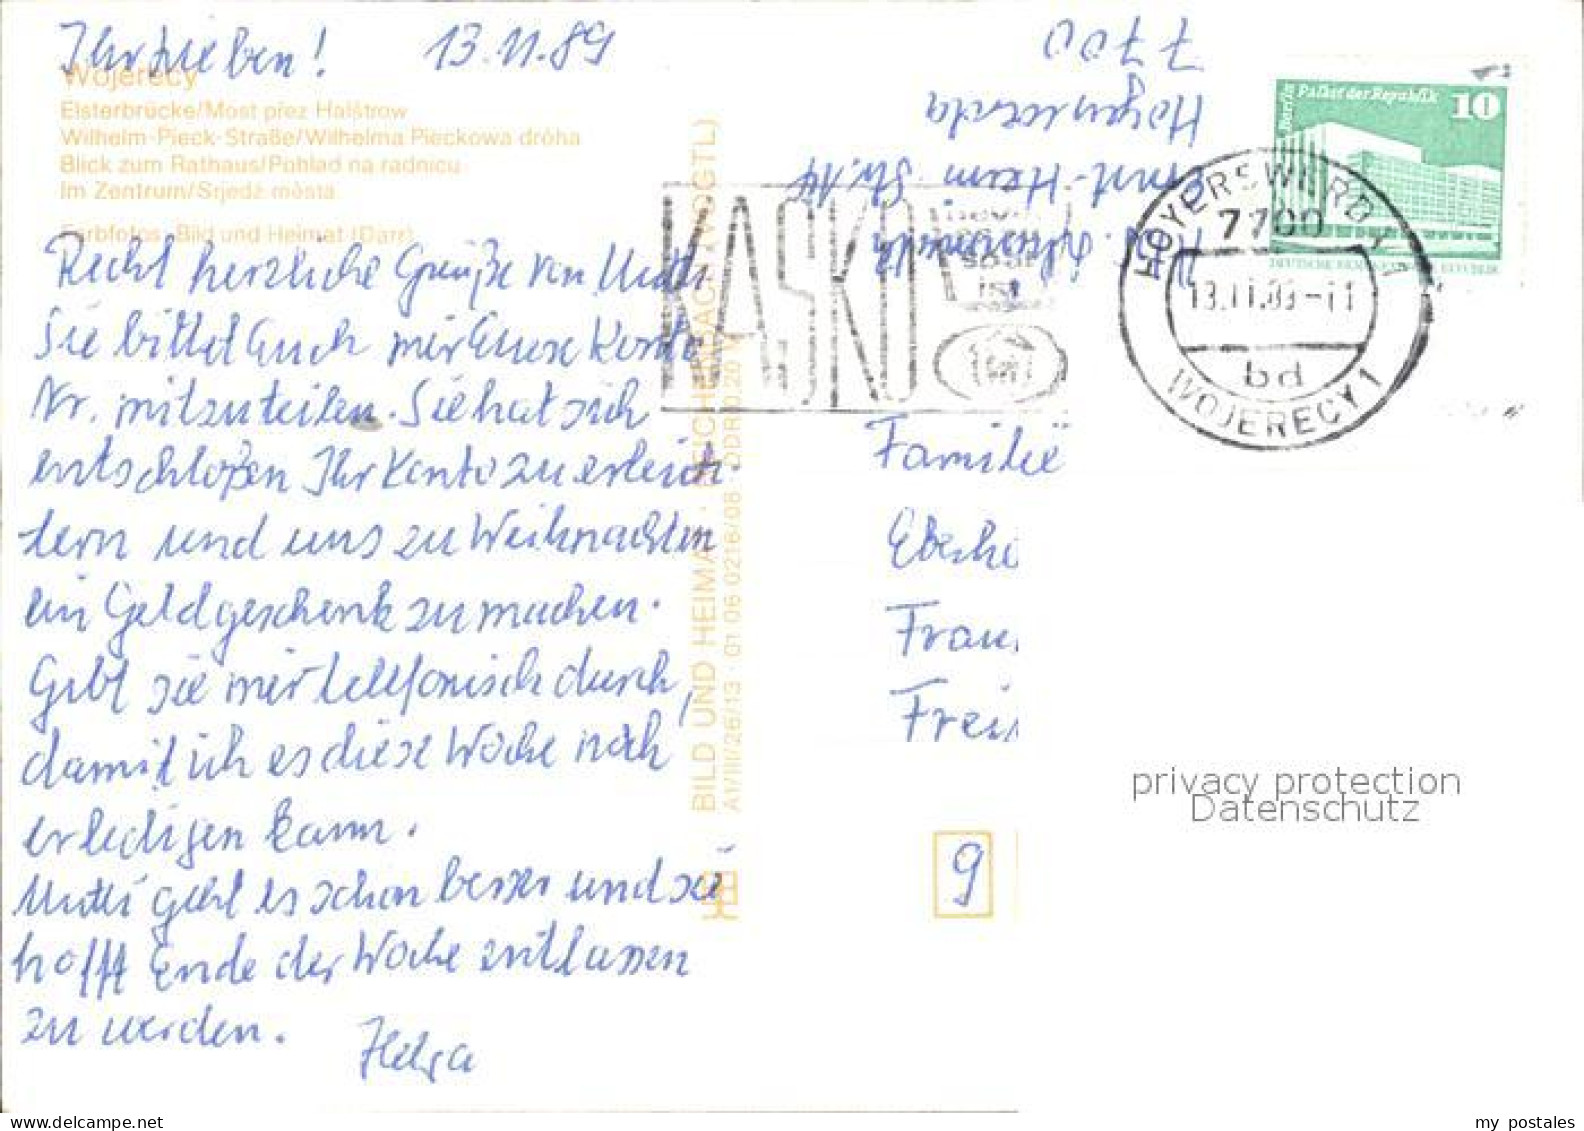 Ihr Lieben! 13.11.89
Wojerecy
Elsterbrücke/Most přez Halštrow
Wilhelm-Pieck-Straße/Wilhelma Pieckowa dróha
Blick zum Rathaus/Pohlad na radnicu
Im Zentrum/Srjedź města
Farbfotos: Bild und Heimat (Darr)
Recht herzliche Grüße von Mutti
Sie bittet Euch mir Eure Konto
Nr. mitzuteilen. Sie hat sich
entschloßen Ihr Konto zu erleich-
tern und uns zu Weihnachten
ein Geldgeschenk zu machen.
Gebt sie mir telefonisch durch,
damit ich es diese Woche noch
erledigen kann.
Mutti geht es schon besser und sie
hofft Ende der Woche entlassen
zu werden.
Helga
BILD UND HEIMAT · REICHENBACH (VOGTL)
A1/III/26/13 01 06 0216/08 DDR 0,20
7700
Hoyerswerda
Str. 14
Berlin Palast der Republik
10
HOYERSWERDA 1
7700
13.11.89-11
bd
WOJERECY 1
KASKO
ist
Familie
Eberh
Fran
Frei
9
privacy protection
Datenschutz
my postales